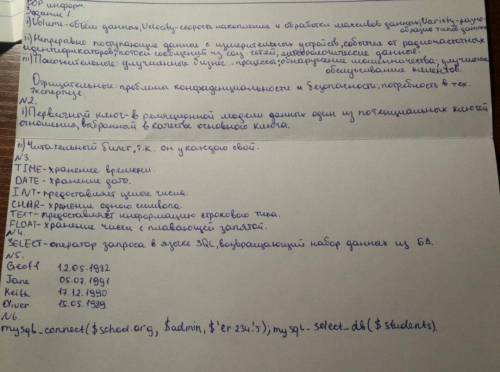 СОР информ
Задание 1.
i) Volume-объём данных, Velocity-скорость накопления и обработки массивов данных, Variety-разно-
образие типов данных
ii) Непрерывно поступающие данные с измерительных устройств, события от радиочастотных
идентификаторов, потоки сообщений из соц. сетей, метеорологические данные.
iii) Положительные: улучшение бизнес-процесса; обнаружение мошенничества; улучшение
обслуживания клиентов.
Отрицательные: проблемы конфиденциальности и безопасности; потребность в тех.
экспертизе.
№2.
i) Первичный ключ-в реляционной модели данных один из потенциальных ключей
отношения, выбранной в качестве основного ключа.
ii) Читательный билет, т.к. он у каждого свой.
№3.
TIME-хранение времени.
DATE-хранение дата.
INT-предоставляет целое число.
CHAR-хранение одного символа.
TEXT-предоставляет информацию строкового типа.
FLOAT-хранение чисел с плавающей запятой.
№4.
SELECT-оператор запроса в языке SQL, возвращающий набор данных из БД.
№5.
Geoff 12.05.1992
Jane 05.07.1991
Keith 17.12.1990
Oliver 15.05.1989
№6.
mysql_connect($school.org, $admin, $'er234!s); mysql_select_db($students)